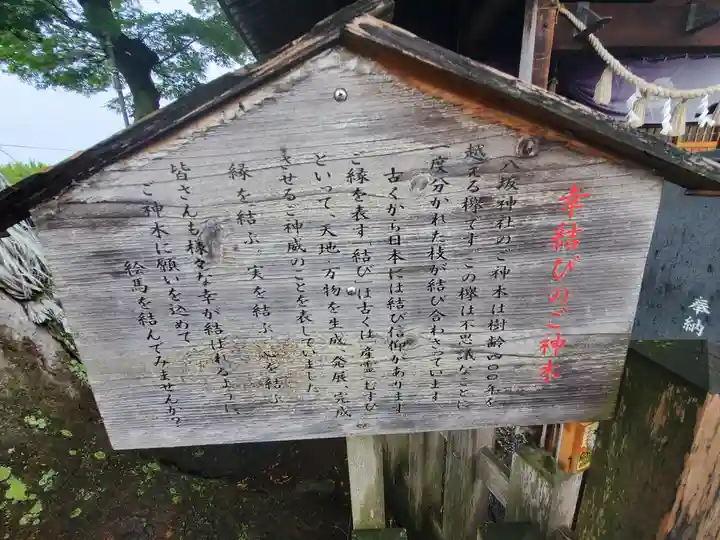 幸結びのご神木
八坂神社のご神木は樹齢四〇〇年を
越える欅です。この欅は不思議なことに
一度分かれた枝が結び合わさっています
古くから日本には結び信仰があります
ご縁を表す「結び」は古くは「産霊」むすび
といって、天地・万物を生成、発展、完成
させるご神威のことを表していました
縁を結ぶ。実を結ぶ。を結ぶ
皆さんも様々な幸が結ばれるように、
ご神木に願いを込めて
絵馬を結んでみませんか?
奉納